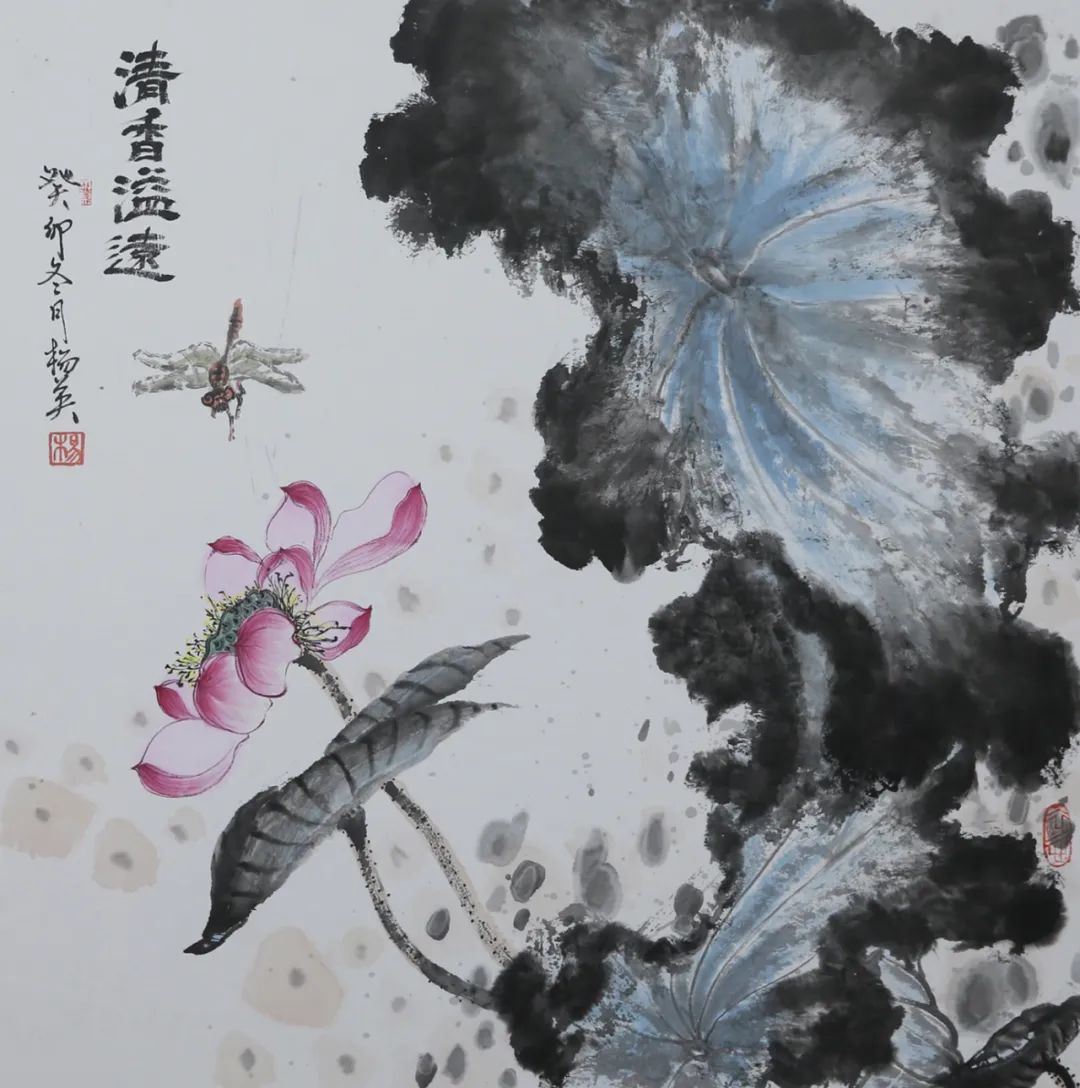 清香溢遠
癸卯冬月楊英
楊